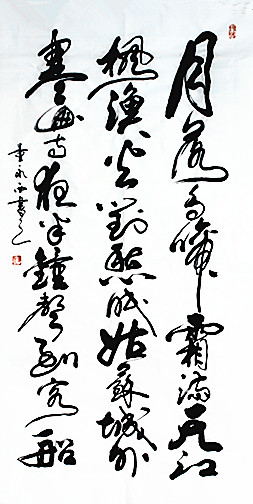 月落烏啼霜滿天江
楓漁火對愁眠姑蘇城外
寒山寺夜半鐘聲到客船
永書